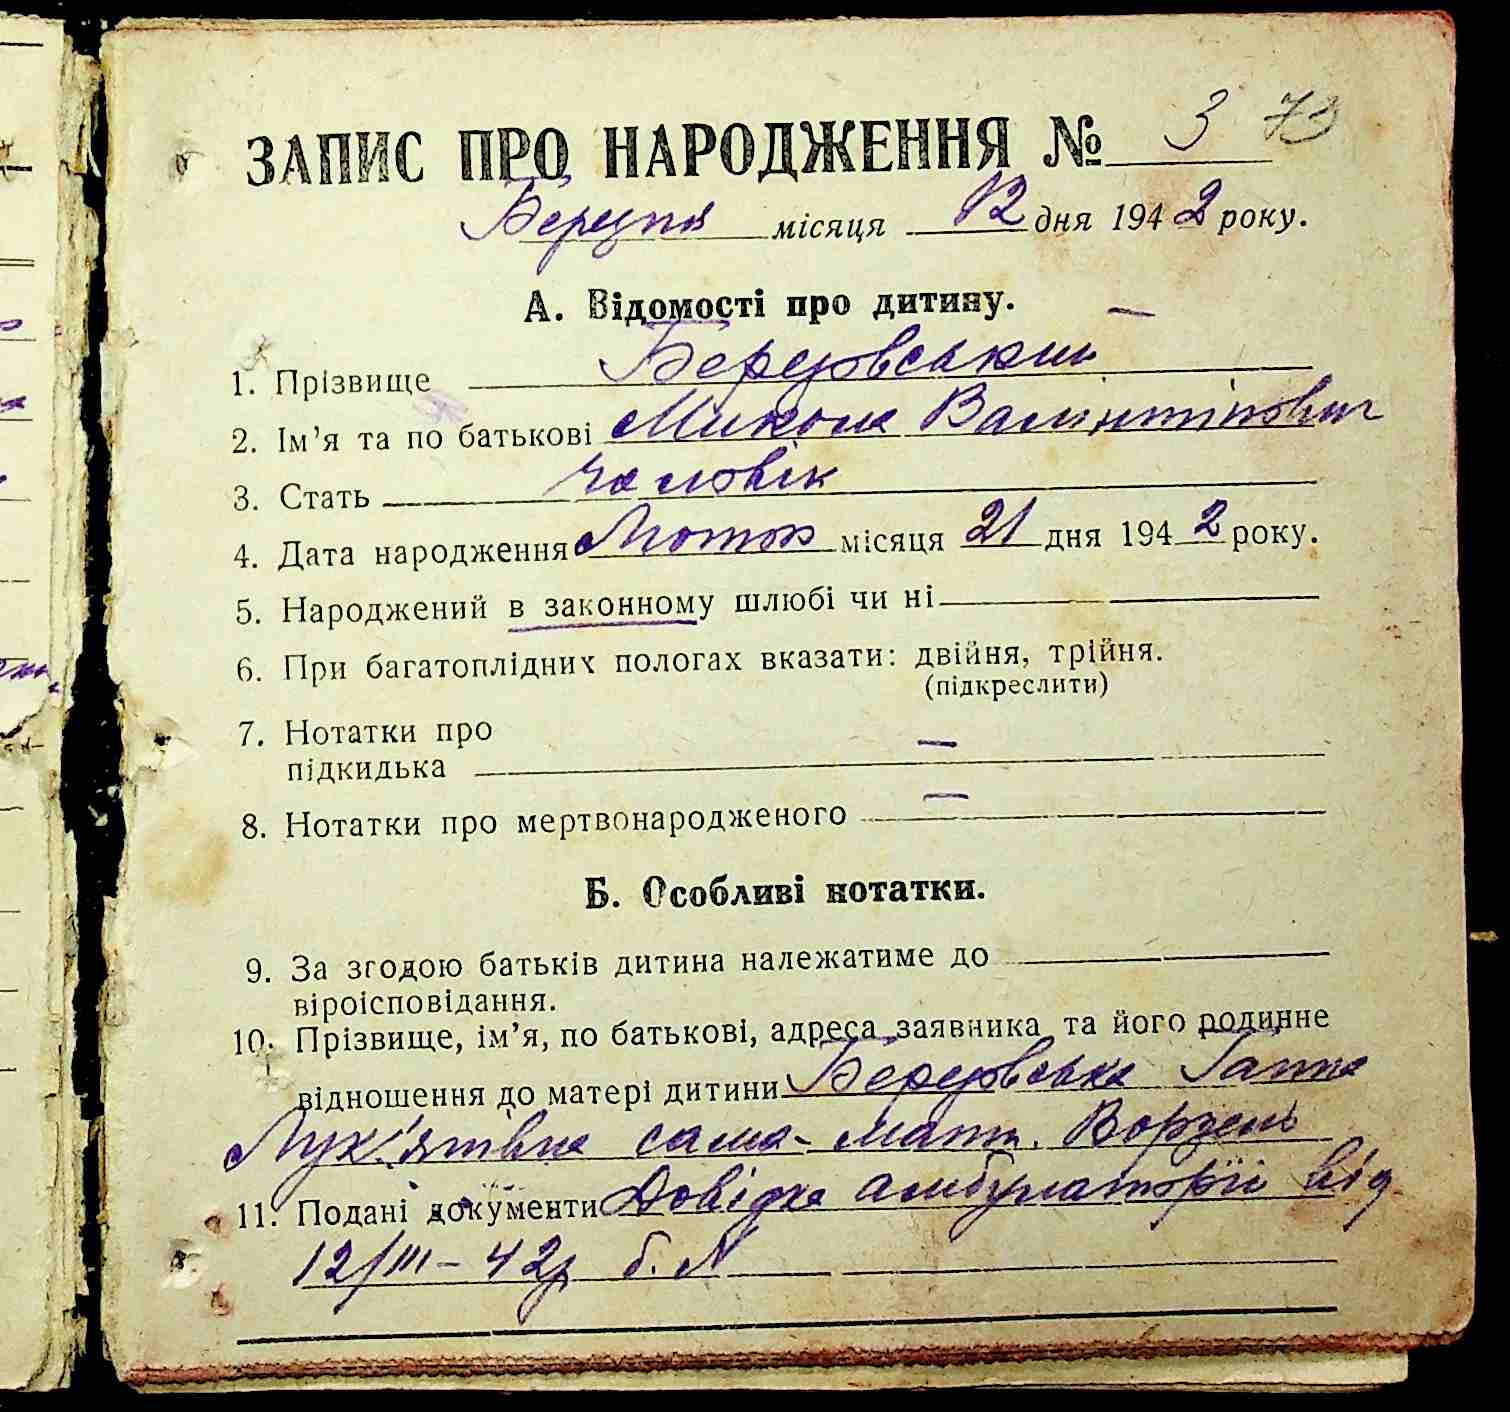 ЗАПИС ПРО НАРОДЖЕННЯ № 3 73
Березня місяця 12 дня 1942 року.
А. Відомості про дитину.
1. Прізвище Березовський
2. Ім’я та по батькові Микола Валінтінович
3. Стать Чоловік
4. Дата народження Лютого місяця 21 дня 1942 року.
5. Народжений в законному шлюбі чи ні
6. При багатоплідних пологах вказати: двійня, трійня.
(підкреслити)
7. Нотатки про
підкидька —
8. Нотатки про мертвонародженого —
Б. Особливі нотатки.
9. За згодою батьків дитина належатиме до
віроісповідання.
10. Прізвище, ім’я, по батькові, адреса заявника та його родинне
відношення до матері дитини Березовська Ганна
Лук'янівна сама - мати. Ворзель
11. Подані документи Довідка амбулаторії від
12/III – 42р б. N